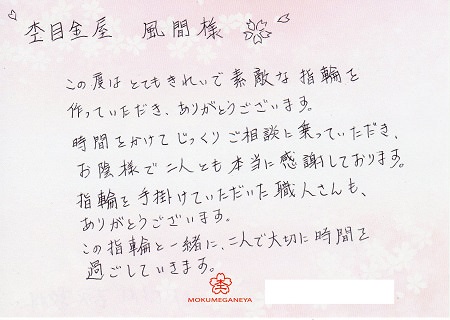 杢目金屋 風間様
この度はとてもきれいで素敵な指輪を
作っていただき、ありがとうございます。
時間をかけてじっくりご相談に乗っていただき、
お陰様で二人とも本当に感謝しております。
指輪を手掛けていただいた職人さんも、
ありがとうございます。
この指輪と一緒に、二人で大切に時間を
過ごしていきます。
MOKUMEGANEYA